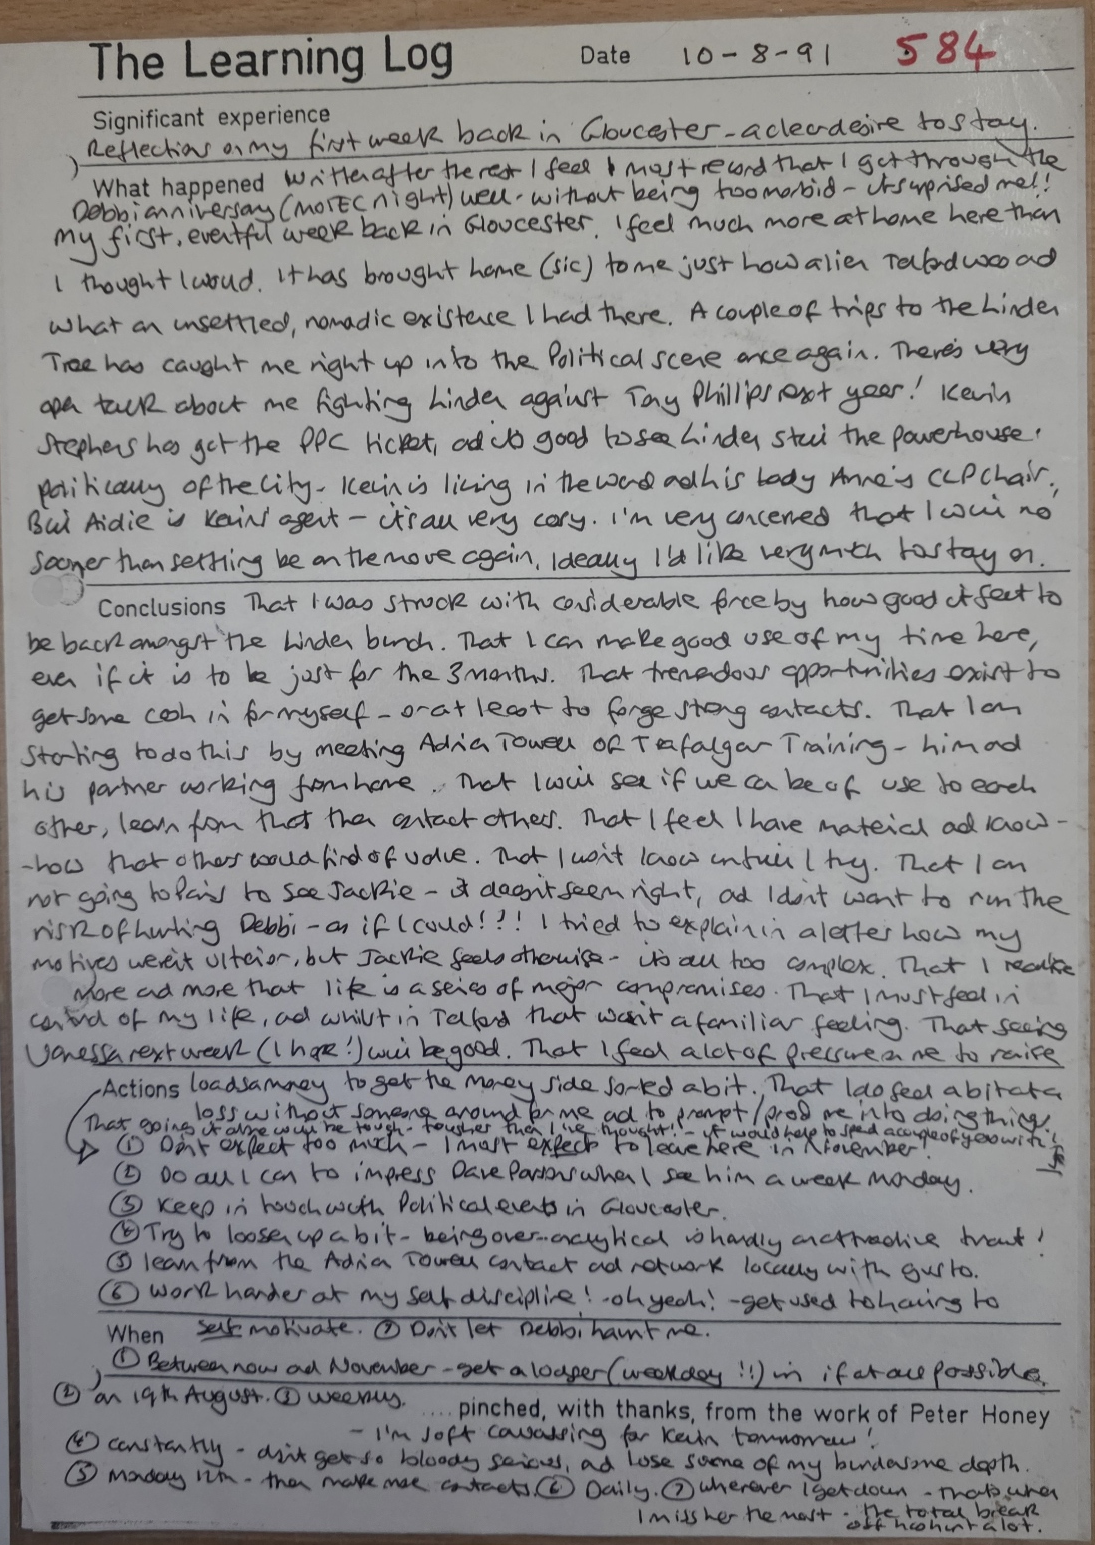 The Learning Log Date 10-8-91 584
Significant experience
Reflections on my first week back in Gloucester - a clear desire to stay.
What happened Written after the rest I feel I must record that I got through the
Debbi anniversary (MOTEC night) well - without being too morbid - it surprised me!!
My first, eventful week back in Gloucester. I feel much more at home here than
I thought I would. It has brought home (sic) to me just how alien Telford was and
what an unsettled, nomadic existence I had there. A couple of trips to the Linden
Tree has caught me right up into the Political scene once again. There's very
open talk about me fighting Linden against Tony Phillips next year! Kevin
Stephens has got the PPC ticket, and it's good to see Linden still the powerhouse
politically of the City - Kevin is living in the ward and his lady Anne's CLP Chair,
But Aidie is Kevin's agent - it's all very cosy. I'm very concerned that I will no
sooner than settling be on the move again. Ideally I'd like very much to stay on.
Conclusions That I was struck with considerable force by how good it felt to
be back amongst the Linden bunch. That I can make good use of my time here,
even if it is to be just for the 3 months. That tremendous opportunities exist to
get some cash in for myself - or at least to forge strong contacts. That I am
starting to do this by meeting Adrian Towell of Trafalgar Training - him and
his partner working from home. That I will see if we can be of use to each
other, learn from that then contact others. That I feel I have material and know-
-how that others would find of value. That I won't know until I try. That I am
not going to Paris to see Jackie - it doesn't seem right, and I don't want to run the
risk of hurting Debbi - as if I could!?! I tried to explain in a letter how my
motives weren't ulterior, but Jackie feels otherwise - it's all too complex. That I realise
more and more that life is a series of major compromises. That I must feel in
control of my life, and whilst in Telford that wasn't a familiar feeling. That seeing
Vanessa next week (I hope!) will be good. That I feel a lot of pressure on me to raise
Actions loadsamoney to get the money side sorted a bit. That I do feel a bit at a
loss without someone around for me and to prompt/prod me into doing things.
That going it alone will be tough - tougher than I've thought! - it would help to spend a couple of years with
① Don't expect too much - I must expect to leave here in November!
② Do all I can to impress Dave Parsons when I see him a week Monday.
③ Keep in touch with Political events in Gloucester.
④ Try to loosen up a bit - being over-analytical is hardly an attractive trait!
⑤ learn from the Adrian Towell contact and network locally with gusto.
⑥ Work harder at my self discipline! - oh yeah! - get used to having to
When self motivate. ⑦ Don't let Debbi haunt me.
① Between now and November - get a lodger (weekday!!) in if at all possible.
② on 19th August. ③ weekly. .... pinched, with thanks, from the work of Peter Honey
- I'm soft canvassing for Kevin tomorrow!
④ constantly - don't get so bloody serious, and lose some of my burdensome depth.
⑤ Monday 12th - then make more contacts. ⑥ Daily. ⑦ wherever I get down - that's when
I miss her the most - the total break
off has hurt a lot.